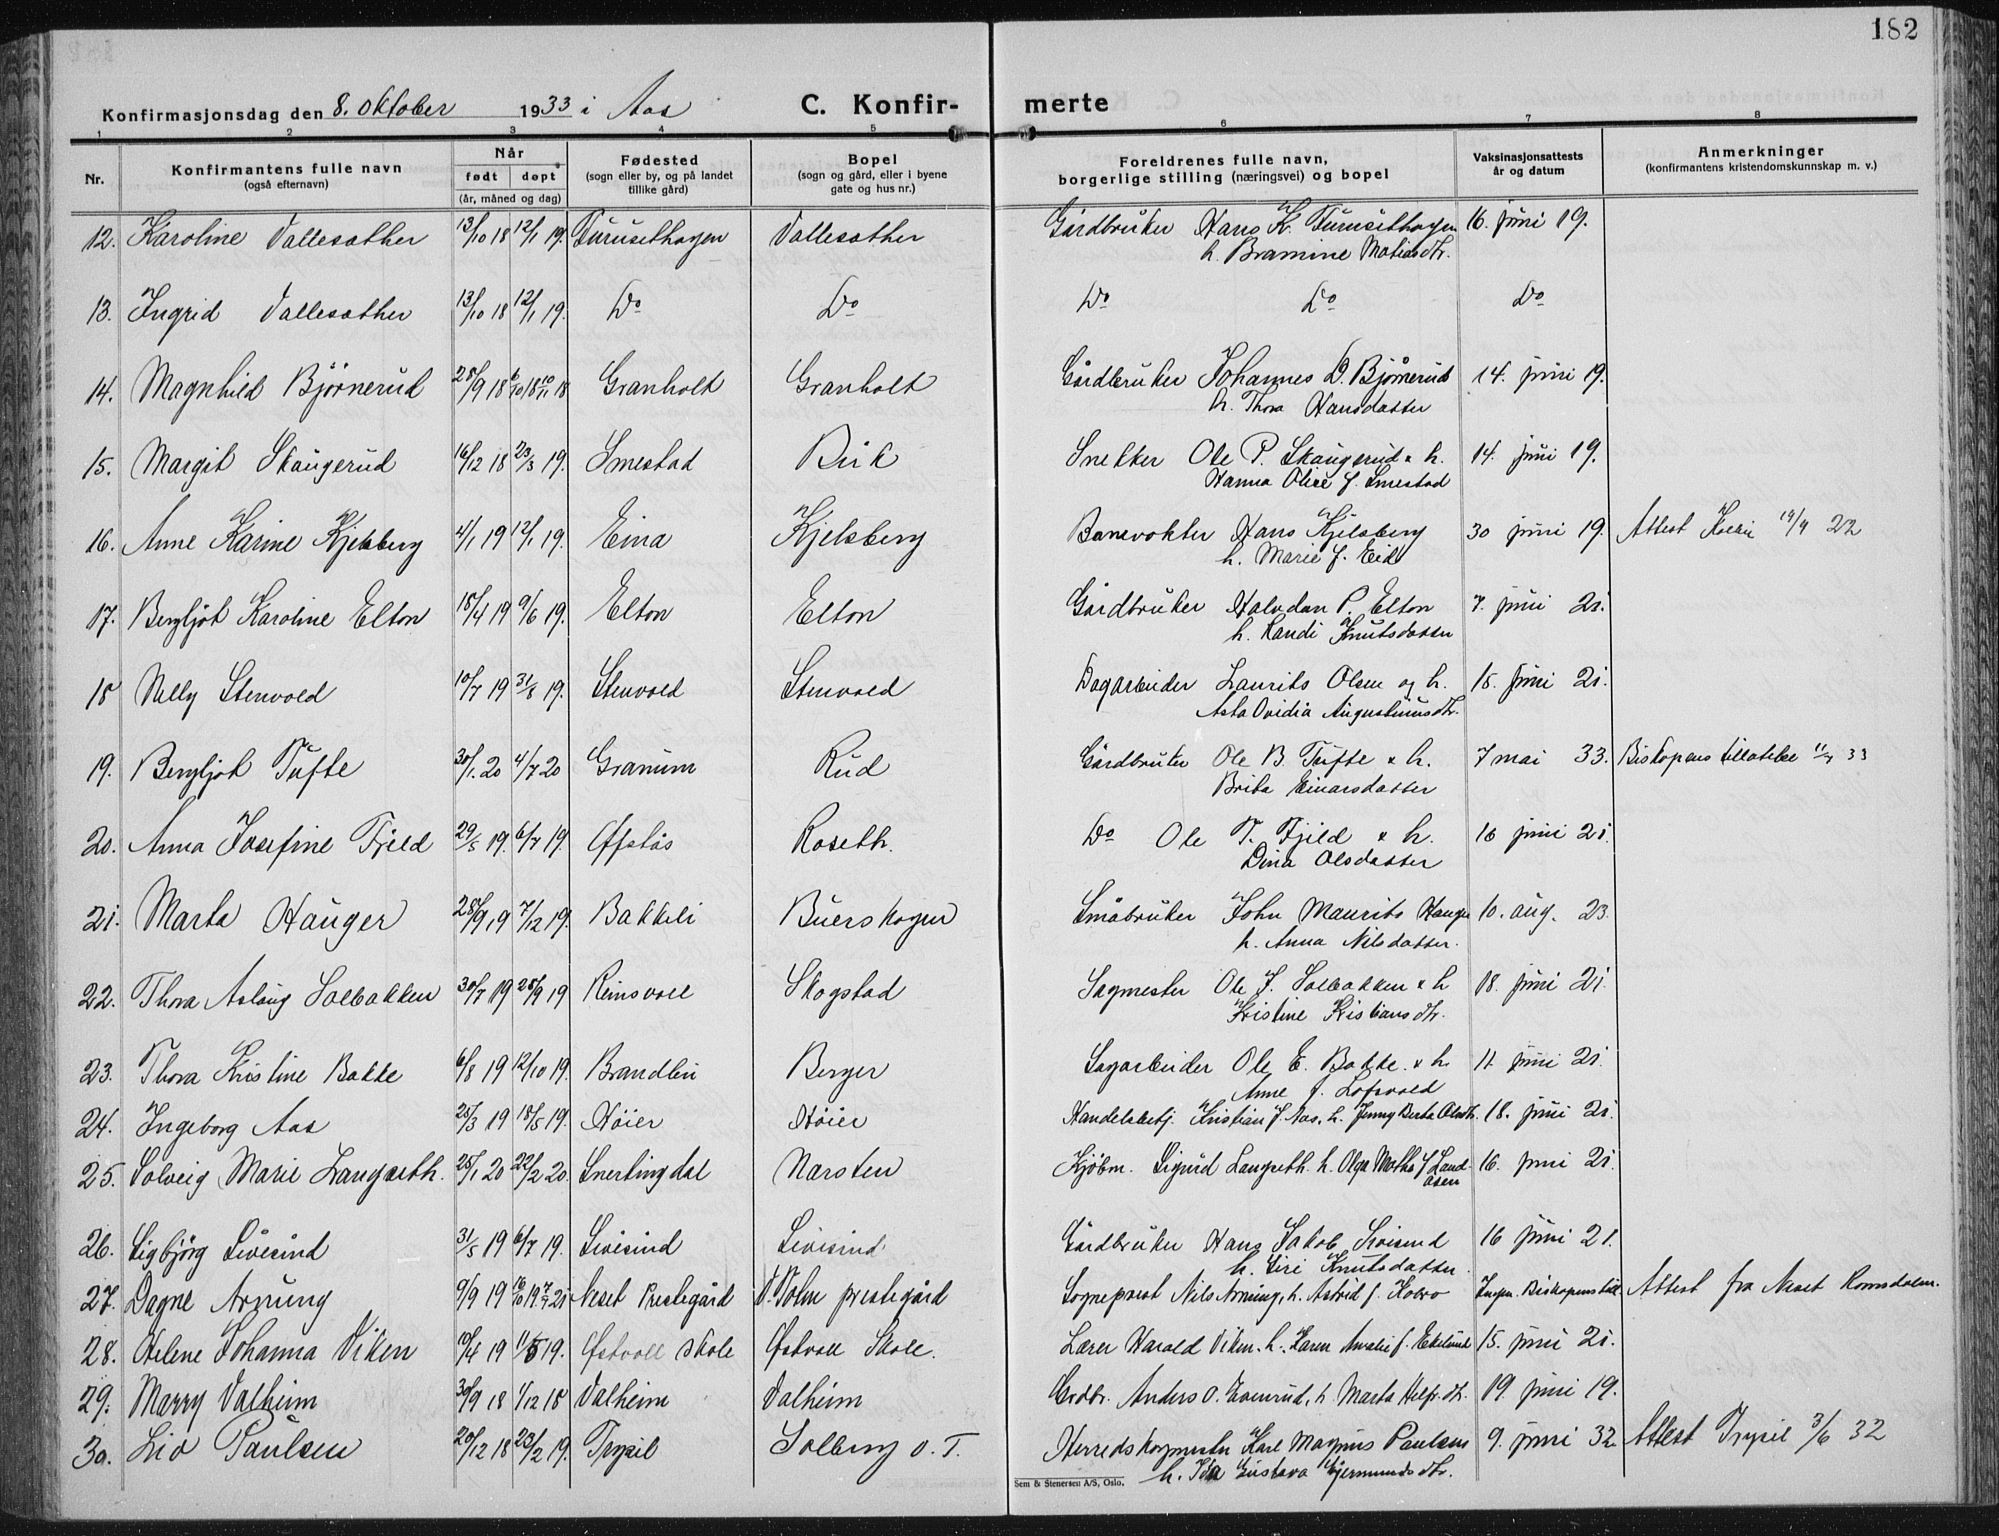 182
Konfirmasjonsdag den 8. oktober 1933 i Aas C. Konfir- merte
1 2 3 4 5 6 7 8
Nr. Konfirmantens fulle navn (også efternavn) Når født døpt (år, måned og dag) Fødested (sogn eller by, og på landet tillike gård) Bopel (sogn og gård, eller i byene gate og hus nr.) Foreldrenes fulle navn, borgerlige stilling (næringsvei) og bopel Vaksinasjonsattests år og datum Anmerkninger (konfirmantens kristendomskunnskap m. v.)
12. Karoline Vallesæther 13/10 18 12/1 19. Turusethagen Vallesæther Gårdbruker Hans K. Turusethagen 16. juni 19.
h. Bramine Matiasdtr.
13. Ingrid Vallesæther 13/10 18 12/1 19. Do Do Do Do Do
14. Magnhild Bjørnerud 28/9 18 6/10 18 10/11 18 Granholt Granholt Gårdbruker Johannes D. Bjørnerud 14. juni 19.
h. Thora Hansdatter
15. Margit Skaugerud 16/12 18 23/3 19. Smestad Birk Snekker Ole P. Skaugerud & h. 14. juni 19.
Hanna Olise f. Smestad
16. Anne Karine Kjelsberg 4/1 19 12/1 19. Eina Kjelsberg Banevokter Hans Kjelsberg 30 juni 19. Attest 19/9 22
h. Marie f. Eid
17. Bergljot Karoline Elton 18/4 19 9/6 19. Elton Elton Gårdbruker Halvdan P. Elton 7. juni 21.
h. Randi Knutsdatter
18 Nelly Stenvold 10/7 19 31/8 19. Stenvold Stenvold Dagarbeider Laurits Olsen og h. 15. juni 21.
Asta Ovidia Augustinusdtr.
19. Bergljot Tufte 30/1 20 4/7 20 Granum Rud Gårdbruker Ole B. Tufte & h. 7 mai 33. Biskopens tillatelse 11/7 33
Brita Einarsdatter
20. Anna Josefine Fjeld 29/5 19. 6/7 19. Ofstås Roseth. Do Ole T. Fjeld & h. 16 juni 21.
Dina Olsdatter
21. Marta Hauger 28/9 19 7/12 19. Bakkeli Buerskogen Småbruker John Maurits Hauger 10. aug. 23.
h. Anna Nilsdatter.
22. Thora Aslaug Solbakken 30/7 19 28/9 19 Reinsvoll Skogstad Sagmester Ole J. Solbakken & h 18. juni 21.
Kristine Kristiansdtr.
23. Thora Kristine Bakke 6/8 19 12/10 19. Brandlin Berger Sagarbeider Ole E. Bakke. & h 11 juni 21.
Anne f. Lofsvold
24. Ingeborg Aas 25/3 19 18/5 19. Høier Høier Handelsbetj. Kristian J. Aas, h. Jenny Berta Olsdtr. 18. juni 21.
25. Solveig Marie Langseth. 25/1 20 22/2 20. Snertingdal Narsten Kjøbm. Sigurd Langseth. h. Olga f. Land- 16. juni 21.
åsen
26. Sigbjørg Sivesind 31/5 19 6/7 19. Sivesind Sivesind. Gårdbruker Hans Jakob Sivesind 16 juni 21.
h. Siri Knutsdatter.
27. Dagne Arnung 9/9 19 Neset Prestegård V. Toten prestegård Sogneprest Nils Arnung, h. Astrid f. Kobro Ingen. Biskopens till. Attest fra Neset Romsdalen.
28. Helene Johanna Viken 10/4 19 11/5 19. Østvoll skole Østvoll Skole. Lærer Harald Viken. h. Karen Amalie f. Ekelund 15. juni 21.
29. Marry Dalheim 30/9 18 1/12 18 Dalheim Dalheim Grdbr. Anders O. Evenrud, h. Marta 19. juni 19.
30. Liv Paulsen 20/12 18 23/2 19. Trysil Solberg v. T. Herredskogmester Karl Magnus Paulsen 9. juni 32. Attest Trysil 3/6 32
h. Ida Gustava Gjermundsdtr.
Sem & Stenersen A/S, Oslo.